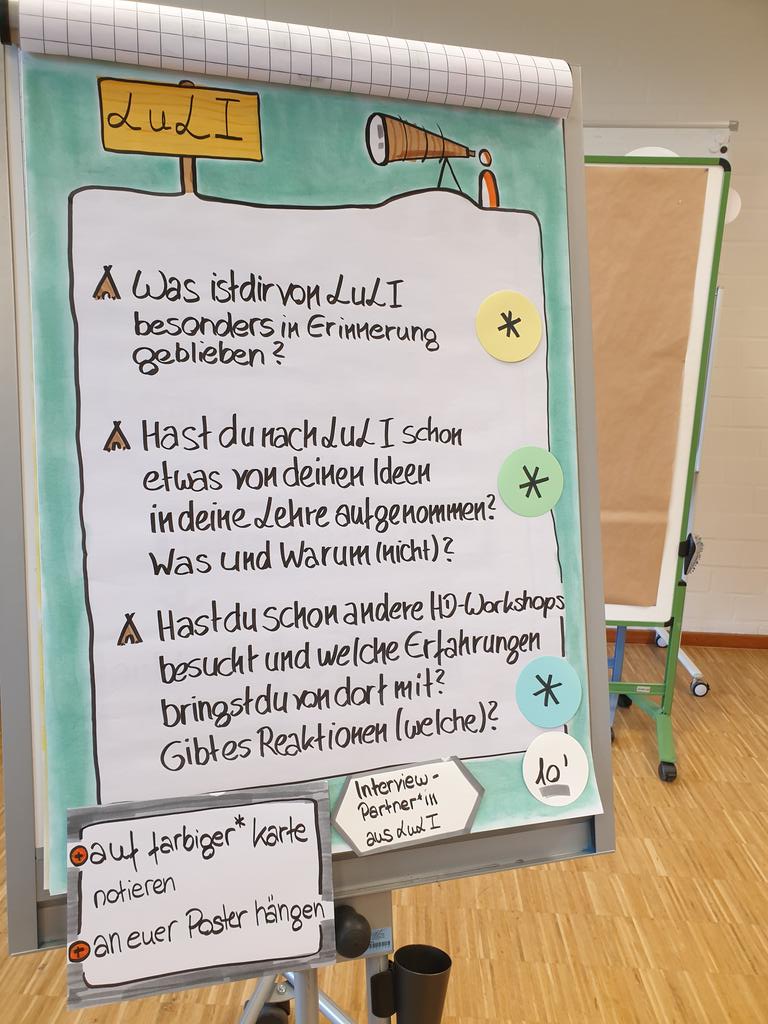 LuLI
Was ist dir von LuLI
besonders in Erinnerung
geblieben?
*
Hast du nach LuLI schon
etwas von deinen Ideen
in deine Lehre aufgenommen?
Was und Warum (nicht)?
*
Hast du schon andere HD-Workshops
besucht und welche Erfahrungen
bringst du von dort mit?
Gibt es Reaktionen (welche)?
*
10'
Interview-
Partner*in
aus LuLI
auf farbiger* Karte
notieren
an euer Poster hängen